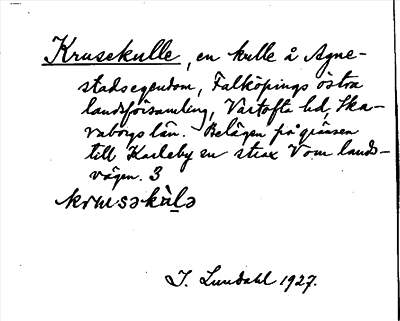 Krusekulle, en kulle å Agne-
stadsegendom, Falköpings östra
landsförsamling, Vartofta hd, Ska-
raborgs län. Belägen på gränsen
till Karleby sn strax V om lands-
vägen. 3
krusəkùlə
I. Lundahl 1927.